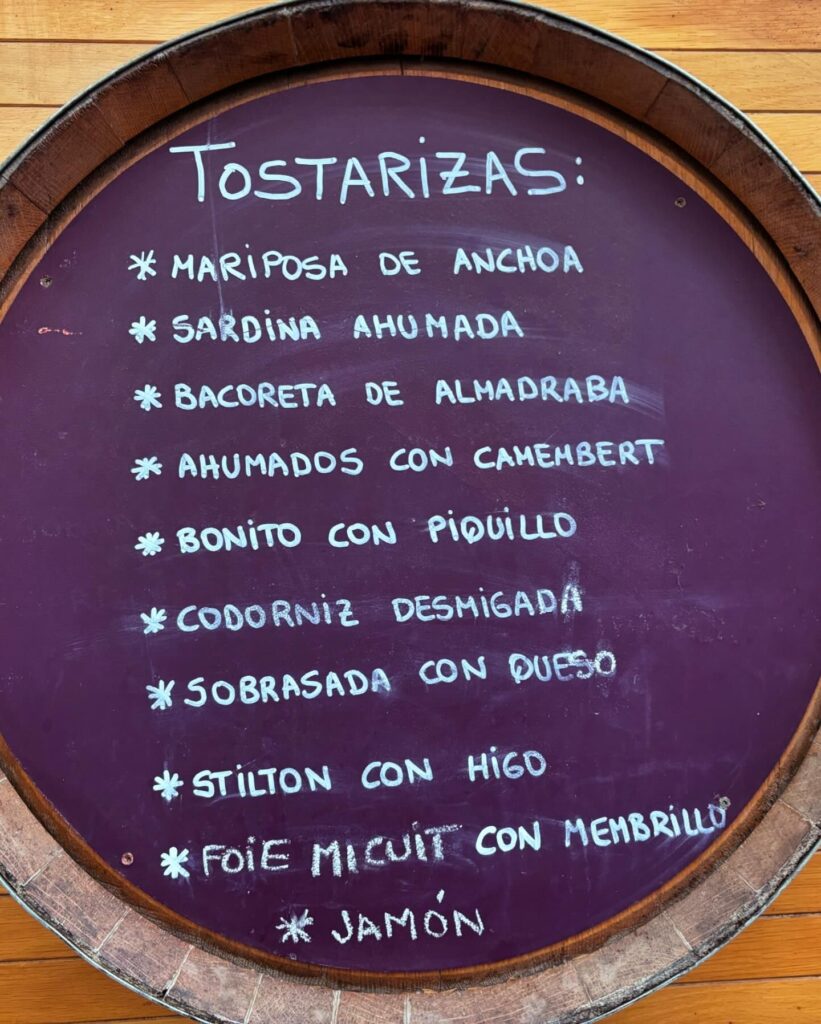 TOSTARIZAS:
* MARIPOSA DE ANCHOA
* SARDINA AHUMADA
* BACORETA DE ALMADRABA
* AHUMADOS CON CAMEMBERT
* BONITO CON PIQUILLO
* CODORNIZ DESMIGADA
* SOBRASADA CON QUESO
* STILTON CON HIGO
* FOIE MICUIT CON MEMBRILLO
* JAMÓN